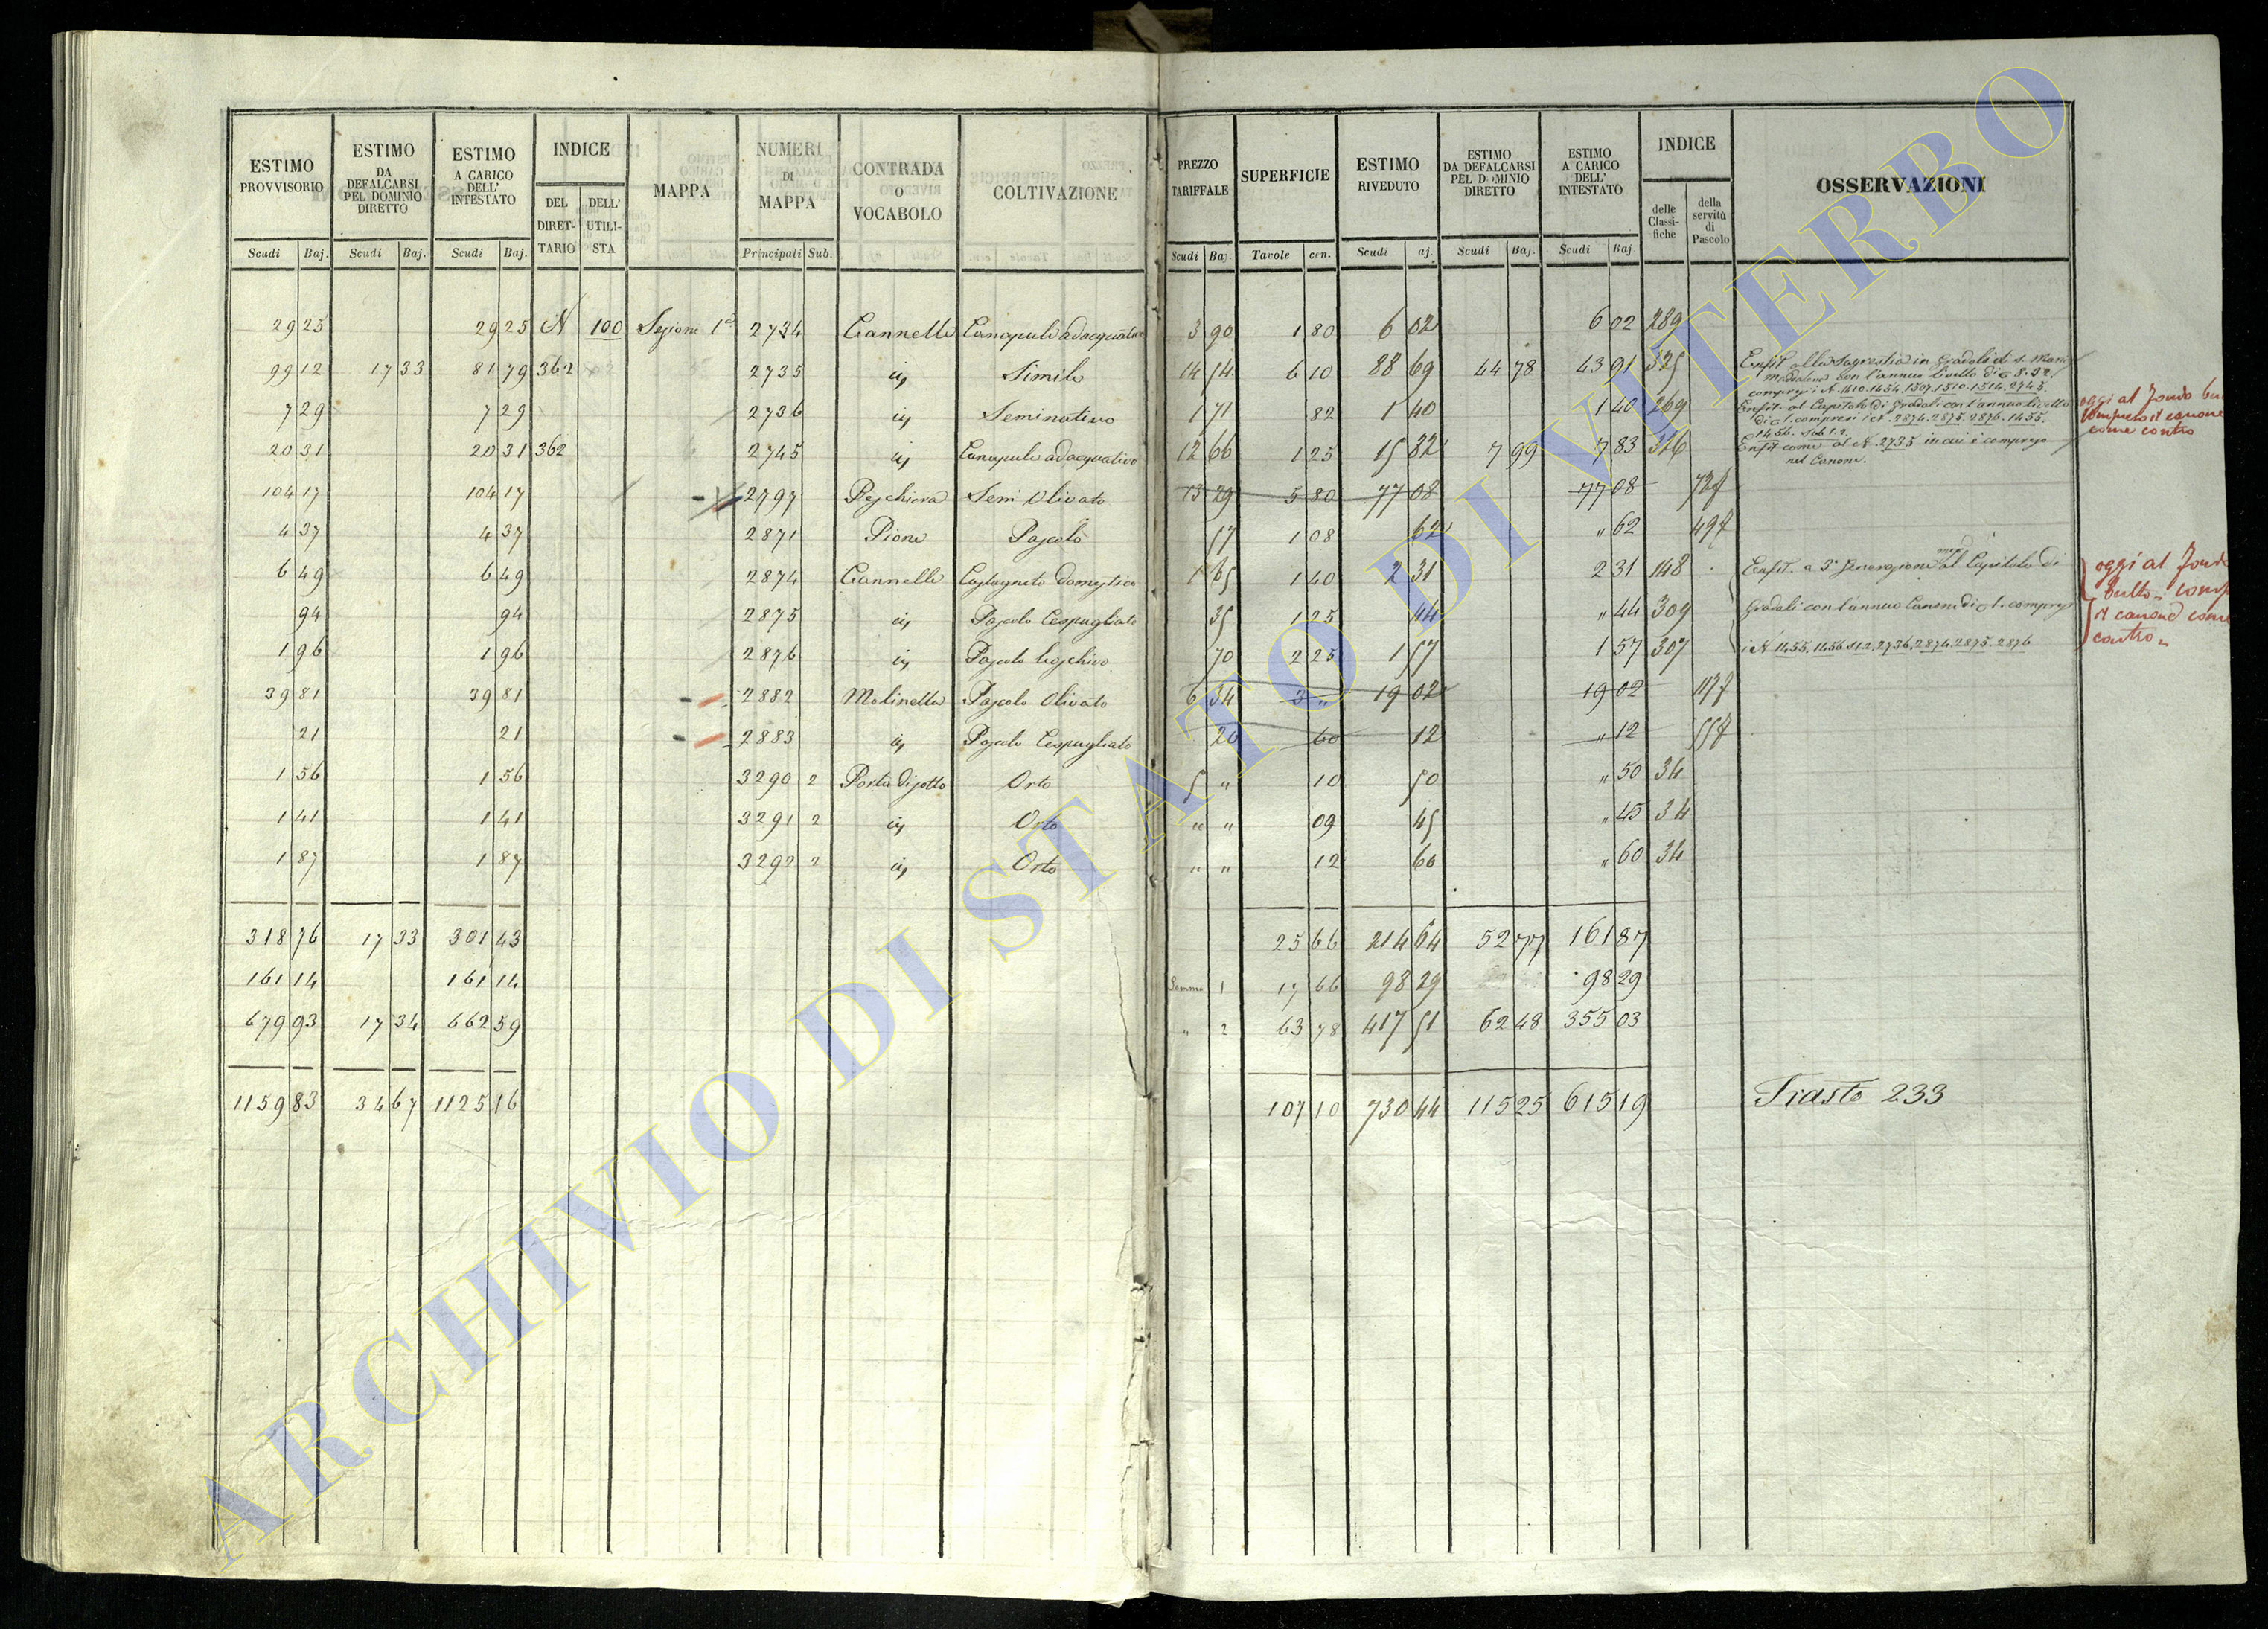 ESTIMO PROVVISORIO
Scudi Baj.
ESTIMO DA DEFALCARSI PEL DOMINIO DIRETTO
Scudi Baj.
ESTIMO A CARICO DELL' INTESTATO
Scudi Baj.
INDICE
DEL DIRETTARIO
DELL' UTILISTA
MAPPA
NUMERI DI MAPPA
Principali Sub.
CONTRADA O VOCABOLO
COLTIVAZIONE
PREZZO TARIFFALE
Scudi Baj.
SUPERFICIE
Tavole cen.
ESTIMO RIVEDUTO
Scudi aj.
ESTIMO DA DEFALCARSI PEL DOMINIO DIRETTO
Scudi Baj.
ESTIMO A CARICO DELL' INTESTATO
Scudi Baj.
INDICE
delle Classifiche
della servitù di Pascolo
OSSERVAZIONI
29 25 29 25 N 100 Sezione 1ª 2734 Cannelle Canapule adacquativo 3 90 1 80 6 02 6 02 289
99 12 17 33 81 79 362 2735 Simile 14 54 6 10 88 69 44 78 43 91 325
7 29 7 29 2736 Seminativo 1 71 82 1 40 1 40 269
20 31 20 31 362 2745 Canapule adacquativo 12 66 1 25 15 82 7 99 7 83 326
104 17 104 17 2797 Peschiera Semi Olivato 13 29 5 80 77 08 77 08
4 37 4 37 2871 Pione Pascolo 57 1 08 62 " 62
6 49 6 49 2874 Cannelle Castagneto domestico 1 65 1 40 2 31 2 31 148
94 94 2875 Pascolo Cespugliato 35 1 25 44 " 44 309
1 96 1 96 2876 Pascolo boschivo 70 2 25 1 57 1 57 307
39 81 39 81 2882 Molinella Pascolo Olivato 6 34 3 " 19 02 19 02
21 21 2883 Pascolo Cespugliato 20 60 12 " 12
1 56 1 56 3290 2 Porta di sotto Orto 5 " 10 50 " 50 34
1 41 1 41 3291 2 Orto " " 09 45 " 45 34
1 87 1 87 3292 2 Orto " " 12 60 " 60 34
Enfit. alla Sagrestia in Gradoli di S. Maria
Madalena con l'annuo livello di 8.32
compresi i N. 1410.1454.1507.1510.1514.2745.
Enfit. al Capitolo di Gradoli con l'annuo
di 1. compresi i N. 2874.2875.2876.1455.
1456. sub 1.2.
Enfit come al N. 2735 in cui è compreso
nel Canone.
Enfit. a 3ª Generazione al Capitolo di
Gradoli con l'annuo Canone di 1. compresi
i N. 1455.1456 s 1.2.2736.2874.2875.2876
oggi al Fondo
compreso il canone
come contro
oggi al Fondo
Culto
il canone come
contro
318 76 17 33 301 43 25 66 214 64 52 77 161 87
161 14 161 14 Somma 1 17 66 98 29 98 29
679 93 17 34 662 59 " 2 63 78 417 51 62 48 355 03
1159 83 34 67 1125 16 107 10 730 44 115 25 615 19
Trasto 233
ARCHIVIO DI STATO DI VITERBO